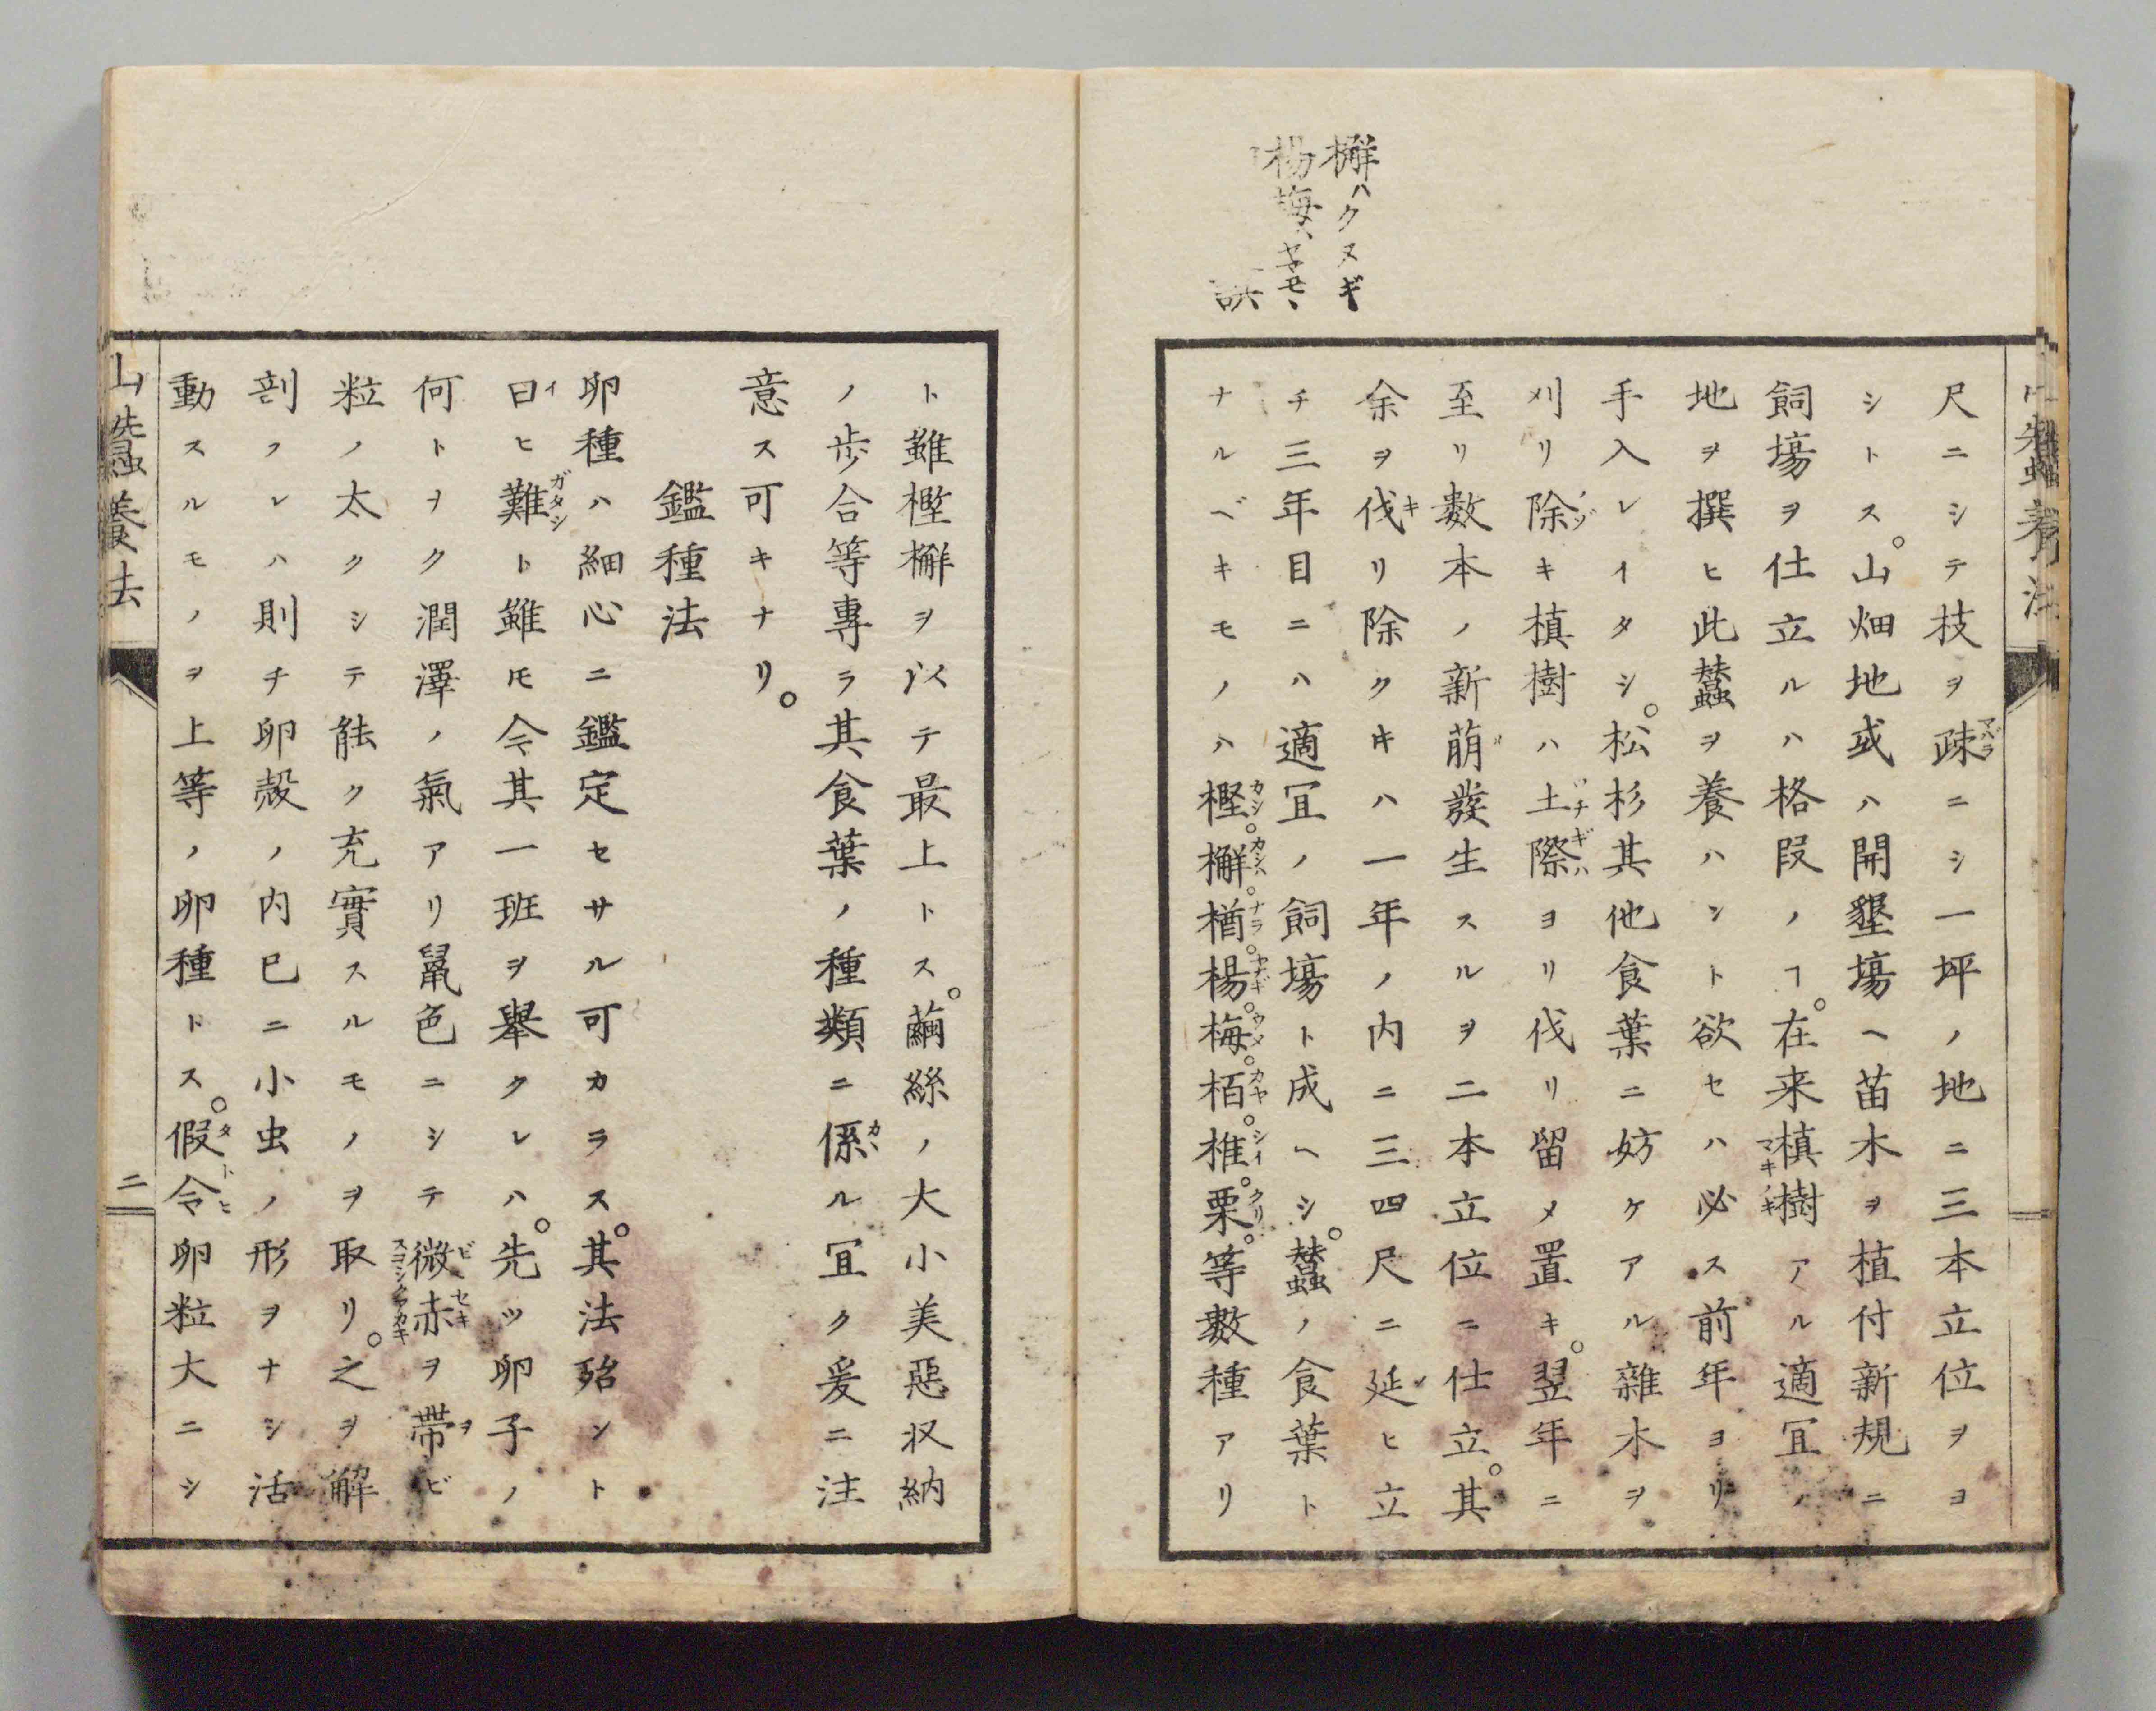 檞ハクヌギ
楊梅ハヤマモヽ
誤
尺ニシテ枝ヲ疎ニシ一坪ノ地ニ三本立位ヲヨ
シトス。山畑地或ハ開墾塲ヘ苗木ヲ植付新規ニ
飼塲ヲ仕立ルハ格段ノヿ。在来槙樹アル適冝ノ
地ヲ撰ヒ此蠶ヲ養ハント欲セハ必ス前年ヨリ
手入レイタシ。松杉其他食葉ニ妨ケアル雜木ヲ
刈リ除キ槙樹ハ土際ヨリ伐リ留メ置キ。翌年ニ
至リ數本ノ新萠發生スルヲ二本立位ニ仕立。其
余ヲ伐リ除クキハ一年ノ内ニ三四尺ニ延ヒ立
チ三年目ニハ適冝ノ飼塲ト成ヘシ。蠶ノ食葉ト
ナルベキモノハ樫。檞。楢。楊。梅。栢。椎。栗。等數種アリ
ト雖樫檞ヲ以テ最上トス。繭絲ノ大小美惡収納
ノ歩合等專ラ其食葉ノ種類ニ係ル冝ク爰ニ注
意ス可キナリ。
鑑種法
卵種ハ細心ニ鑑定セサル可カラス。其法殆ント
曰ヒ難ト雖モ今其一班ヲ舉クレハ。先ツ卵子ノ
何トヲク潤澤ノ氣アリ鼠色ニシテ微赤ヲ帶ビ
粒ノ太クシテ能ク充實スルモノヲ取リ。之ヲ解
剖フレハ則チ卵殼ノ内巳ニ小虫ノ形ヲナシ活
動スルモノヲ上等ノ卵種トス。假令卵粒大ニシ
山蠶養法
二